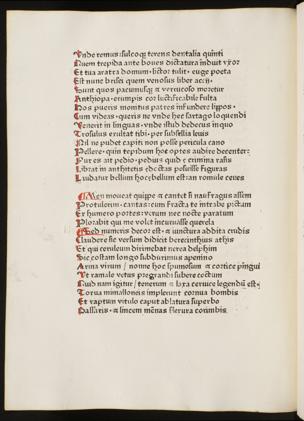 Unde remus: sulcoq; terens dentalia quinti
Quem trepida ante boues dictatura induit vxor
Et tua aratra domum: lictor tulit: euge poeta
Est nunc brisei quem venosus liber accii:
Sunt quos pacuuiusq; & verrucosa moretur
Anthiopa: erumpis cor luctificabile fulta
Hos pueris monitus patres infundere lippos
Cum videas: queris ne vnde hec sartago loquendi
Venerit in linguas: vnde istud dedecus in quo
Trosulus exultat tibi: per subsellia leuis
Nil ne pudet capiti non posse pericula cano
Pellere: quin tepidum hoc optes audire decenter:
Fur es ait pedio: pedius quid: crimina rasis
Librat in antithetis: doctas posuisse figuras
Laudatur bellum hoc: bellum est: an romule ceues
Men moueat quippe & cantet si naufragus assem
Protulerim: cantas: cum fracta te in trabe pictum
Ex humero portes: verum nec nocte paratum
Plorabit qui me volet incuruasse querela
Sed numeris decor est: & iunctura addita crudis
Claudere sic versum didicit berecinthius athis
Et qui ceruleum dirimebat nerea delphin
Sic costam longo subduximus apenino
Arma virum / nonne hoc spumosum & cortice pingui
Ut ramale vetus pregrandi subere coctum
Quid nam igitur / tenerum & laxa ceruice legendum est:
Torua mimalloneis implerunt cornua bombis
Et raptum vitulo caput ablatura superbo
Bassaris: & lincem menas flexura corimbis